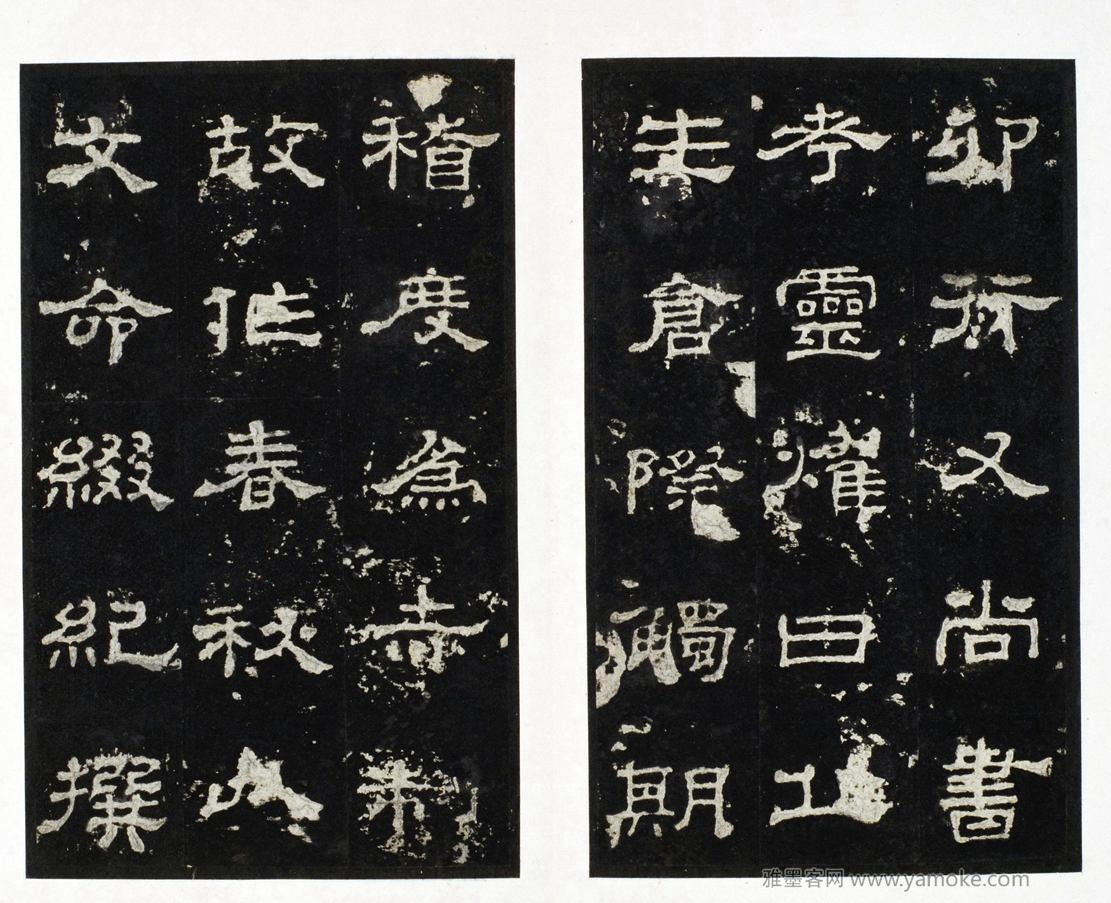 卯行又尚書
考靈燿曰丘
生倉際觸期
稽度為赤制
故作春秋以
文命綴紀撰
雅墨客网 www.yamoke.com